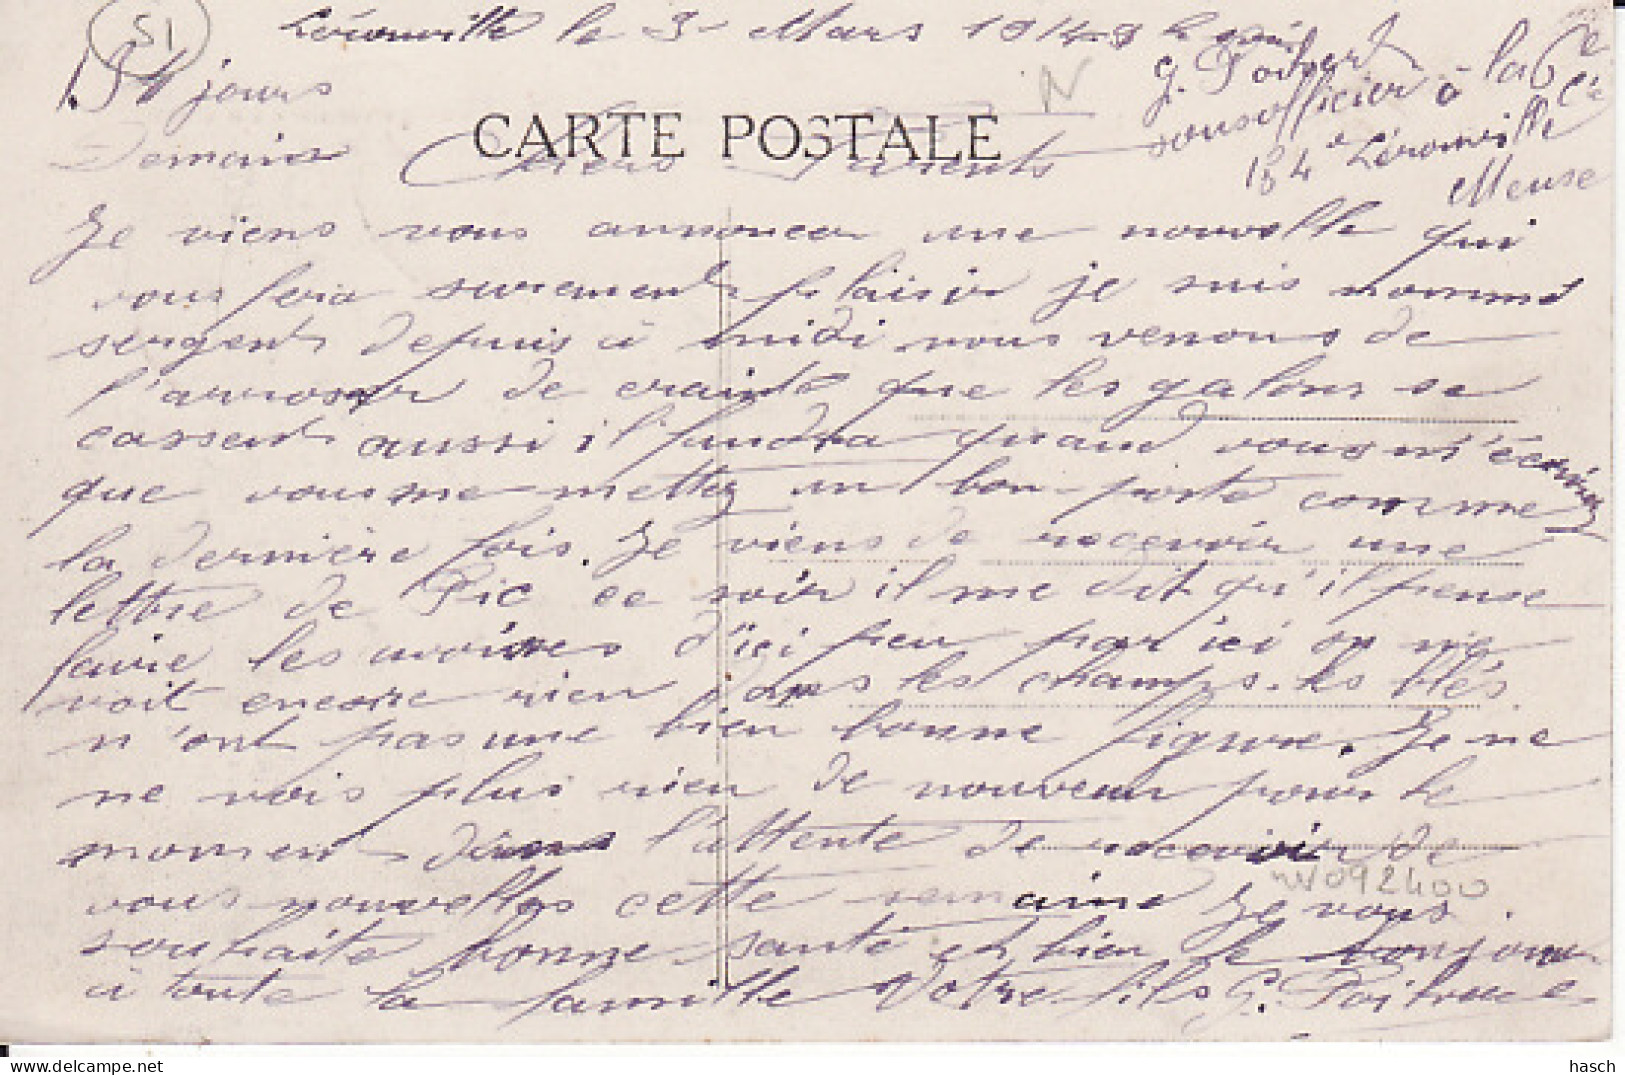 51
Lérouville le 3 Mars 1914
G. Poitevin
sous officier à la 6e Cie
154e Lérouville
Meuse
jours
Demain
N
CARTE POSTALE
Chers Parents
Je viens vous annoncer une nouvelle qui
vous fera surement plaisir je suis nommé
sergent depuis à midi nous venons de
l'arroser de crainte que les galons se
cassent aussi il faudra quand vous m'écrirez
que vous me mettez un bon poste comme
la dernière fois. Je viens de recevoir une
lettre de Pic ce soir il me dit qu'il pense
faire les avoines d'ici peu par ici on ne
voit encore rien dans les champs. les blés
n'ont pas une bien bonne figure. Je ne
ne vois plus rien de nouveau pour le
moment dans l'attente de recevoir de
vous nouvelles cette semaine Je vous
souhaite bonne santé et bien le bonjour
à toute la famille Votre fils G.
092400
delcampe.net
hasch